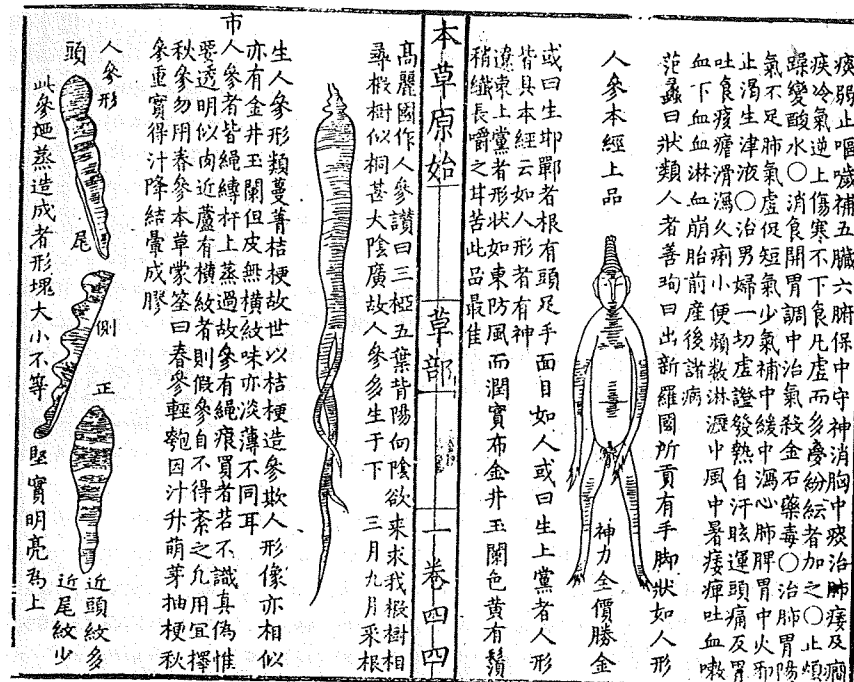 痰弱止嘔噦補五臟六腑保中守神消胸中痰治肺痿及癎
疾冷氣逆上傷寒不下食凡虛而多夢紛紜者加之〇止煩
躁變酸水〇消食開胃調中治氣殺金石藥毒〇治肺胃陽
氣不足肺氣虛促短氣少氣補中緩中瀉心肺脾胃中火邪
止渴生津液〇治男婦一切虛證發熱自汗眩運頭痛反胃
吐食痎瘧滑瀉久痢小便頻數淋瀝中風中暑痿痺吐血嗽
血下血血淋血崩胎前產後諸病
范蠡曰狀類人者善珣曰出新羅國所貢有手脚狀如人形
人參本經上品
神力全價勝金
或曰生邯鄲者根有頭足手面目如人或曰生上黨者人形
皆具本經云如人形者有神
遼東上黨者形狀如東防風而潤實布金井玉闌色黃有鬚
稍纖長嚼之甘苦此品最佳
本草原始
草部
一卷四
四
高麗國作人參讚曰三椏五葉背陽向陰欲來求我椴樹相
尋椴樹似桐甚大陰廣故人參多生于下 三月九月采根
生人參形類蔓菁桔梗故世以桔梗造參欺人形像亦相似
亦有金井玉闌但皮無橫紋味亦淡薄不同耳
市人參者皆繩縛杆上蒸過故參有繩痕買者若不識真偽惟
要透明似肉近蘆有橫紋者則假參自不得紊之凡用宜擇
秋參勿用春參本草蒙筌曰春參輕匏因汁升萌芽抽梗秋
參重實得汁降結暈成膠
人參形
頭
尾
側
正
近頭紋多
近尾紋少
此參迺蒸造成者形塊大小不等
堅實明亮爲上